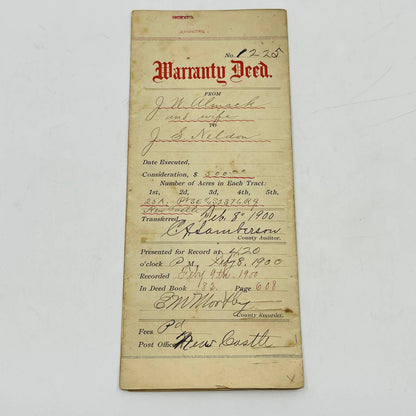 No. 1225
Warranty Deed.
FROM
J. W. Almack
and wife
TO
J. S. Neldon
Date Executed,
Consideration, $ 500.00
Number of Acres in Each Tract:
1st, 2d, 3d, 4th, 5th,
New Castle
Transferred, Feb. 8" 1900
C A Samberson
County Auditor.
Presented for Record at 4.20
o'clock P M., Feby 8, 1900
Recorded Feby 9th 1900
In Deed Book 182 Page 608
E M Moxby
County Recorder.
Fees Pd
Post Office New Castle